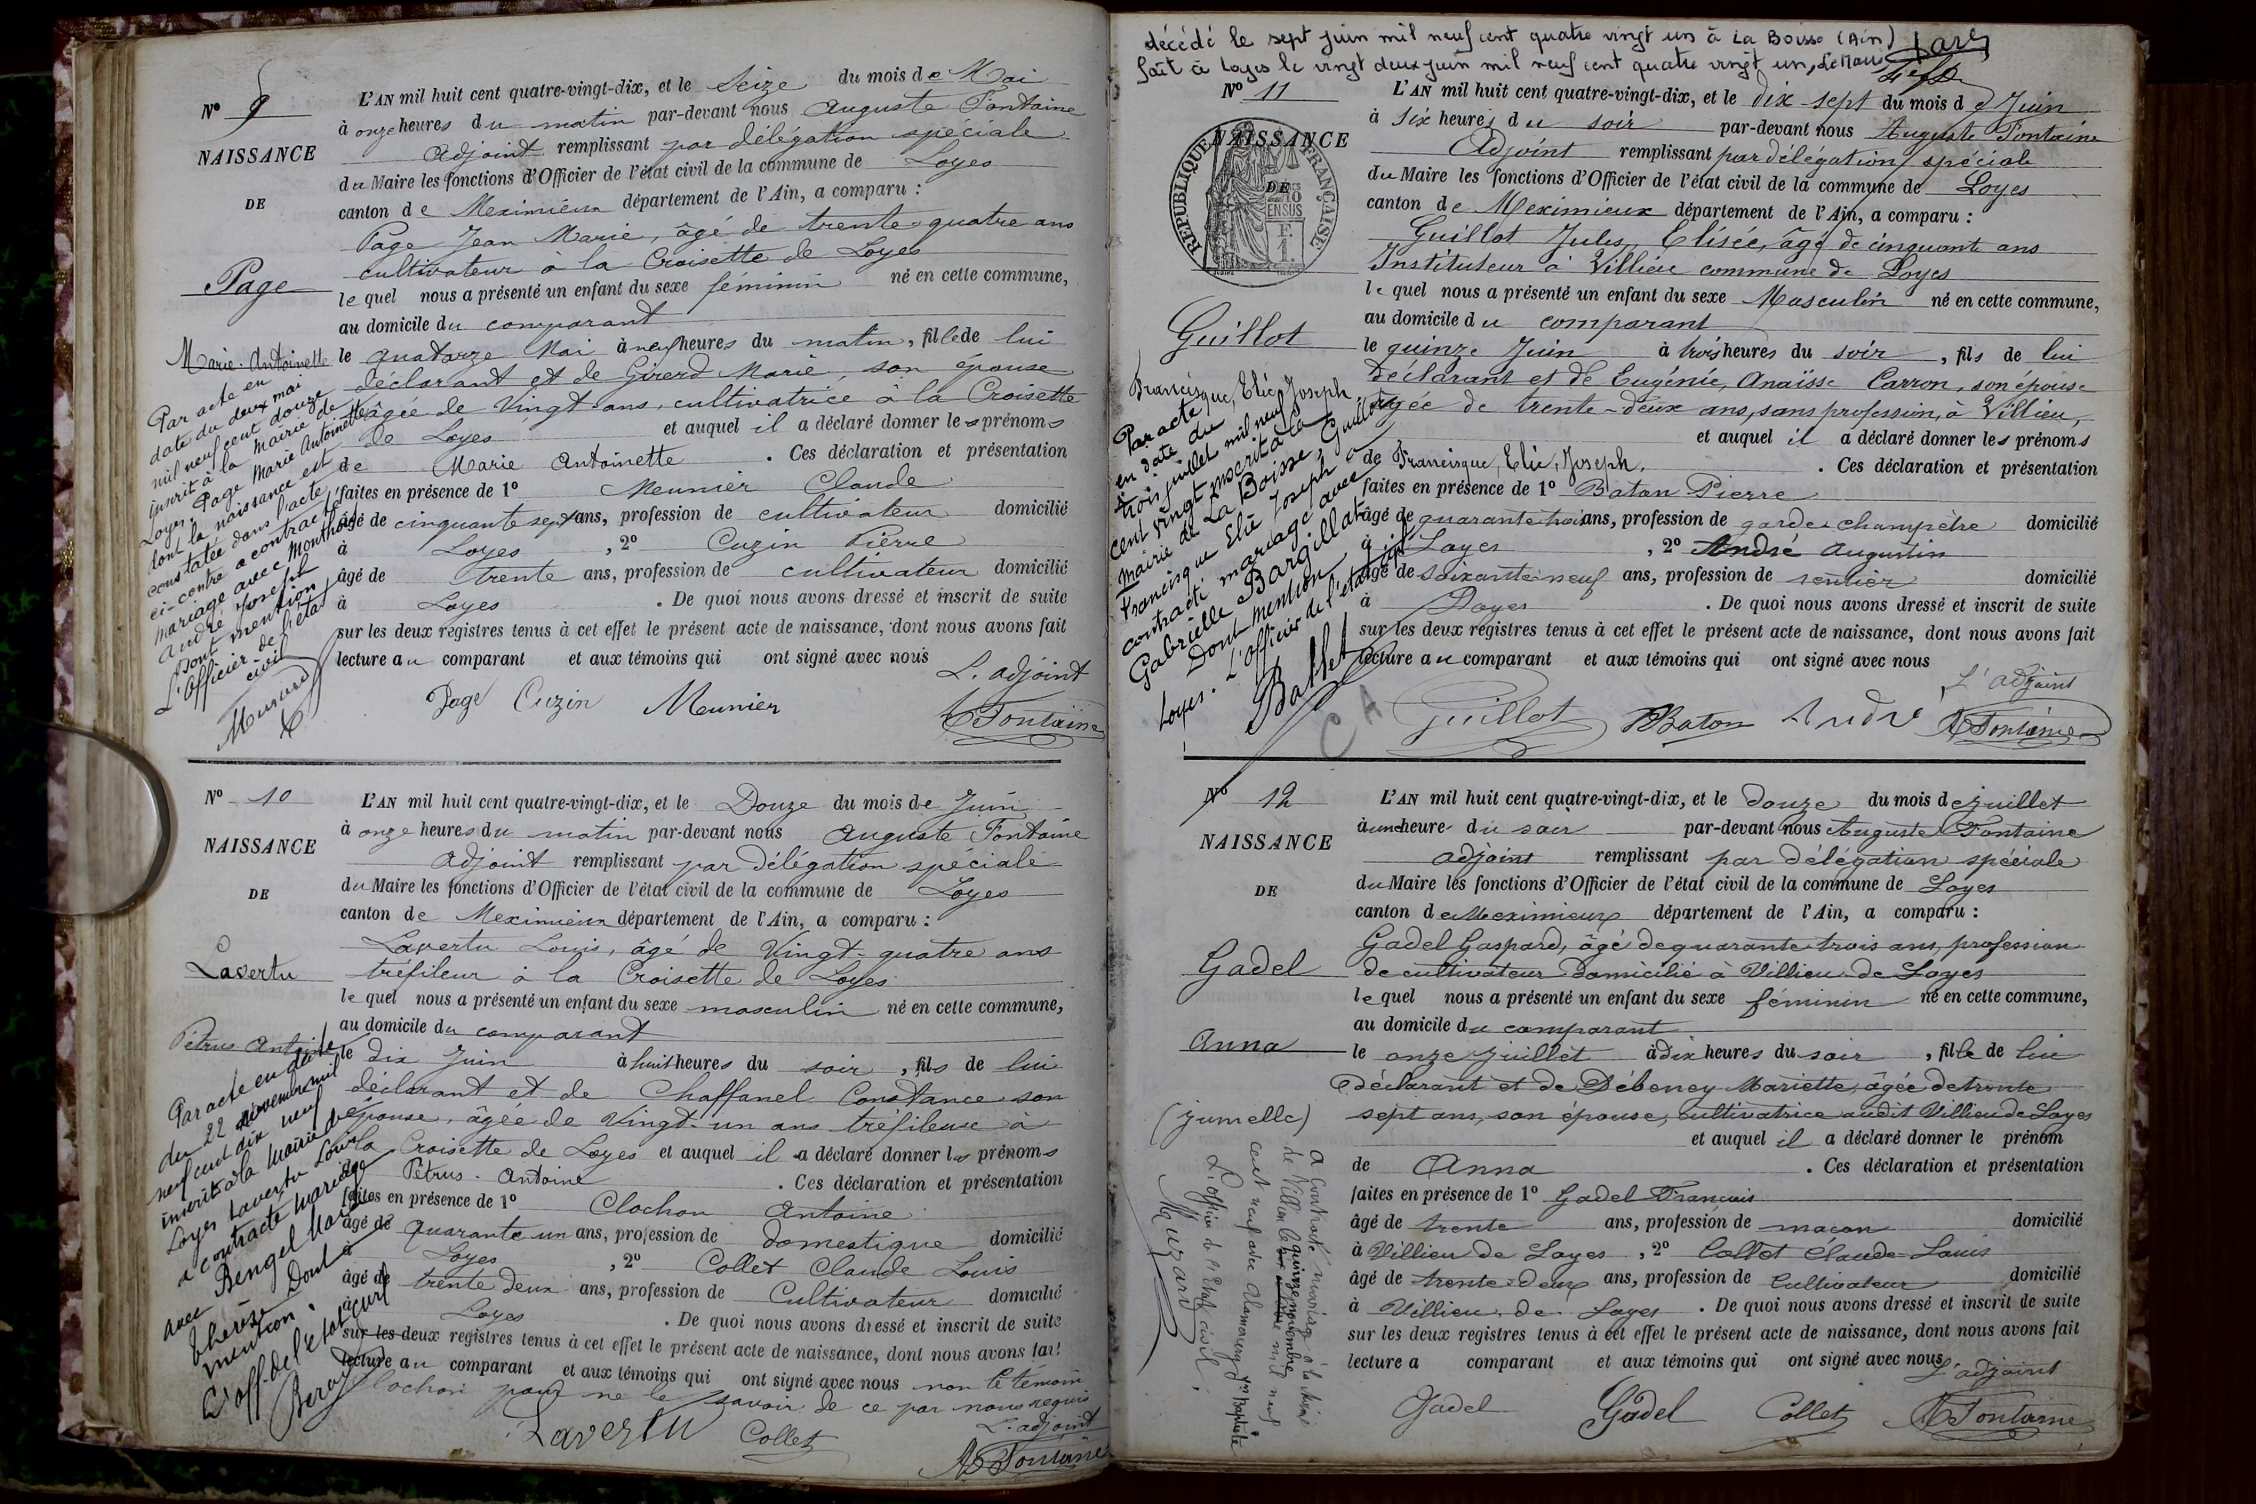 Nº 9
NAISSANCE
DE
Page
Marie Antoinette
L'AN mil huit cent quatre-vingt-dix, et le Seize du mois de Mai
à onze heures du matin par-devant nous Auguste Fontaine
Adjoint remplissant par délégation spéciale
du Maire les fonctions d'Officier de l'état civil de la commune de Loyes
canton de Meximieux département de l'Ain, a comparu :
Page Jean Marie, âgé de trente-quatre ans
cultivateur à la Croisette de Loyes
lequel nous a présenté un enfant du sexe féminin né en cette commune,
au domicile du comparant
le quatorze Mai à neuf heures du matin, fille de lui
déclarant et de Girerd Marie, son épouse
âgée de Vingt ans, cultivatrice à la Croisette
de Loyes et auquel il a déclaré donner les prénoms
de Marie Antoinette . Ces déclaration et présentation
faites en présence de 1º Meunier Claude
âgé de cinquante sept ans, profession de cultivateur domicilié
à Loyes , 2º Cuzin Pierre
âgé de trente ans, profession de cultivateur domicilié
à Loyes . De quoi nous avons dressé et inscrit de suite
sur les deux registres tenus à cet effet le présent acte de naissance, dont nous avons fait
lecture au comparant et aux témoins qui ont signé avec nous
L'adjoint
Page Cuzin Meunier A Fontaine
Par acte en
date du deux mai
mil neuf cent douze
inscrit à la mairie de
Loyes, Page Marie Antoinette
dont la naissance est
constatée dans l'acte
ci-contre a contracté
mariage avec Monthod
André Joseph
Dont mention
L'Officier de l'état
civil
Nº 10
NAISSANCE
DE
Lavertu
Pétrus Antoine
L'AN mil huit cent quatre-vingt-dix, et le Douze du mois de Juin
à onze heures du matin par-devant nous Auguste Fontaine
adjoint remplissant par délégation spéciale
du Maire les fonctions d'Officier de l'état civil de la commune de Loyes
canton de Meximieux département de l'Ain, a comparu :
Lavertu Louis, âgé de Vingt-quatre ans
tréfileur à la Croisette de Loyes
lequel nous a présenté un enfant du sexe masculin né en cette commune,
au domicile du comparant
le dix Juin à huit heures du soir, fils de lui
déclarant et de Chaffanel Constance son
épouse, âgée de Vingt-un ans tréfileuse à
la Croisette de Loyes et auquel il a déclaré donner les prénoms
Pétrus-Antoine . Ces déclaration et présentation
faites en présence de 1º Clochon Antoine
âgé de quarante un ans, profession de domestique domicilié
à Loyes , 2º Collet Claude Louis
âgé de trente deux ans, profession de Cultivateur domicilié
à Loyes . De quoi nous avons dressé et inscrit de suite
sur les deux registres tenus à cet effet le présent acte de naissance, dont nous avons fait
lecture au comparant et aux témoins qui ont signé avec nous non le témoin
Clochon pour ne le savoir de ce par nous requis
L'adjoint
Lavertu Collet A Fontaine
Par acte en date
du 22 novembre mil
neuf cent dix neuf
inscrit à la Mairie de
Loyes Lavertu Louis
a contracté mariage
avec Bengel Marie
thérèse Dont
mention.
L'off. de l'état civil
décédé le sept juin mil neuf cent quatre vingt un à La Boisse (Ain)
fait à Loyes le vingt deux juin mil neuf cent quatre vingt un, Le Maire
Nº 11
NAISSANCE
DE
RÉPUBLIQUE FRANÇAISE
Guillot
Francisque, Elie, Joseph
L'AN mil huit cent quatre-vingt-dix, et le dix-sept du mois de Juin
à Six heures du soir par-devant nous Auguste Fontaine
Adjoint remplissant par délégation spéciale
du Maire les fonctions d'Officier de l'état civil de la commune de Loyes
canton de Meximieux département de l'Ain, a comparu :
Guillot Jules, Elisée, âgé de cinquante ans
Instituteur à Villieu commune de Loyes
lequel nous a présenté un enfant du sexe Masculin né en cette commune,
au domicile du comparant
le quinze Juin à trois heures du soir, fils de lui
déclarant et de Eugénie, Anaïsse Carron, son épouse
âgée de trente-deux ans, sans profession, à Villieu,
et auquel il a déclaré donner les prénoms
de Francisque, Elie, Joseph. . Ces déclaration et présentation
faites en présence de 1º Baton Pierre
âgé de quarante trois ans, profession de garde-champêtre domicilié
à Loyes , 2º André Augustin
âgé de soixante neuf ans, profession de rentier domicilié
à Loyes . De quoi nous avons dressé et inscrit de suite
sur les deux registres tenus à cet effet le présent acte de naissance, dont nous avons fait
lecture au comparant et aux témoins qui ont signé avec nous
L'adjoint
Guillot Baton André A Fontaine
CA
Par acte
en date du
trois juillet mil neuf
cent vingt inscrit à la
mairie de La Boisse, Guillot
Francisque Elie Joseph a
contracté mariage avec
Gabrielle Bargillat
Dont mention
Loyes. L'officier de l'état civil
Nº 12
NAISSANCE
DE
Gadel
Anna
(jumelle)
L'AN mil huit cent quatre-vingt-dix, et le douze du mois de juillet
à une heure du soir par-devant nous Auguste Fontaine
adjoint remplissant par délégation spéciale
du Maire les fonctions d'Officier de l'état civil de la commune de Loyes
canton de Meximieux département de l'Ain, a comparu :
Gadel Gaspard, âgé de quarante trois ans, profession
de cultivateur domicilié à Villieu de Loyes
lequel nous a présenté un enfant du sexe féminin né en cette commune,
au domicile du comparant
le onze juillet à dix heures du soir, fille de lui
déclarant et de Débeney Mariette, âgée de trente
sept ans, son épouse, cultivatrice audit Villieu de Loyes
et auquel il a déclaré donner le prénom
de Anna . Ces déclaration et présentation
faites en présence de 1º Gadel François
âgé de trente ans, profession de maçon domicilié
à Villieu de Loyes , 2º Collet Claude-Louis
âgé de trente-deux ans, profession de Cultivateur domicilié
à Villieu de Loyes . De quoi nous avons dressé et inscrit de suite
sur les deux registres tenus à cet effet le présent acte de naissance, dont nous avons fait
lecture a comparant et aux témoins qui ont signé avec nous
L'adjoint
Gadel Gadel Collet A Fontaine
A contracté mariage à la Mairie
de Villieu le quinze novembre mil neuf
cent neuf avec Jean Baptiste
L'officier de l'état civil,
Muzard